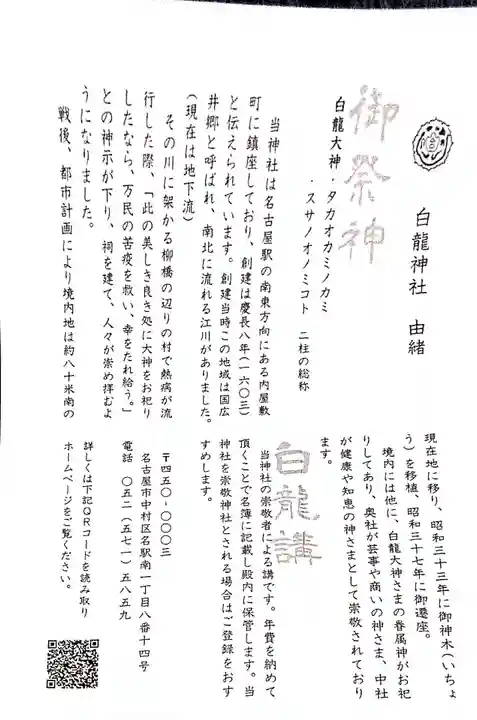 白龍神社　由緒
御祭神
白龍大神・タカオカミノカミ
・スサノオノミコト　二柱の総称
当神社は名古屋駅の南東方向にある内屋敷
町に鎮座しており、創建は慶長八年(一六〇三)
と伝えられています。創建当時この地域は国広
井郷と呼ばれ、南北に流れる江川がありました。
(現在は地下流)
その川に架かる柳橋の辺りの村で熱病が流
行した際、「此の美しき良き処に大神をお祀り
したなら、万民の苦疫を救い、幸をたれ給う。」
との神示が下り、祠を建て、人々が崇め拝むよ
うになりました。
戦後、都市計画により境内地は約八十米南の
現在地に移り、昭和三十三年に御神木(いちょ
う)を移植、昭和三十七年に御遷座。
境内には他に、白龍大神さまの眷属神がお祀
りしてあり、奥社が芸事や商いの神さま、中社
が健康や知恵の神さまとして崇敬されており
ます。
白龍講
当神社の崇敬者による講です。年費を納めて
頂くことで名簿に記載し殿内に保管します。当
神社を崇敬神社とされる場合はご登録をおす
すめします。
〒四五〇-〇〇〇三
名古屋市中村区名駅南一丁目八番十四号
電話　〇五二(五七一)五八五九
詳しくは下記QRコードを読み取り
ホームページをご覧ください。